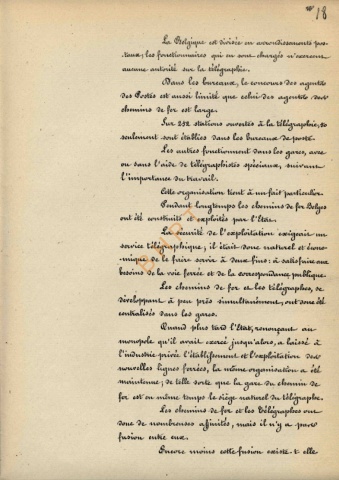 18
La Belgique est divisée en arrondissements pos-
taux; les fonctionnaires qui en sont chargés n'exercent
aucune autorité sur la télégraphie.
Dans les bureaux, le concours des agents
des Postes est aussi limité que celui des agents des
chemins de fer est large.
Sur 252 stations ouvertes à la télégraphie,
seulement sont établies dans les bureaux de poste.
Les autres fonctionnent dans les gares, avec
ou sans l'aide de télégraphistes spéciaux, suivant
l'importance du travail.
Cette organisation tient à un fait particulier
Pendant longtemps les chemins de fer Belges
ont été construits et exploités par l'Etat.
La sécurité de l'exploitation exigeait un
service télégraphique; il était donc naturel et écono-
mique de le faire servir à deux fins: à satisfaire aux
besoins de la voie ferrée et de la correspondance publique
Les chemins de fer et les télégraphes, se
développant à peu près simultanément, ont donc été
centralisés dans les gares.
Quand plus tard l'Etat, renonçant au
monopole qu'il avait exercé jusqu'alors, a laissé à
l'industrie privée l'établissement et l'exploitation des
nouvelles lignes ferrées, la même organisation a été
maintenue; de telle sorte que la gare du chemin de
fer est en même temps le siège naturel du télégraphe.
Les chemins de fer et les Télégraphes ont
donc de nombreuses affinités, mais il n'y a pas
fusion entre eux.
Encore moins cette fusion existe-t-elle